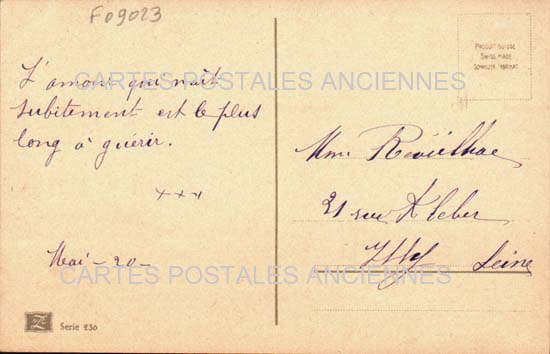 F09023
PRODUIT SUISSE
SWISS MADE
CARTES POSTALES ANCIENNES
L'amour qui naît
subitement est le plus
long à guérir.
+++
Mai - 20 -
Mme
21 rue Kleber
Issy Seine
CARTES POSTALES ANCIENNES
Serie 236